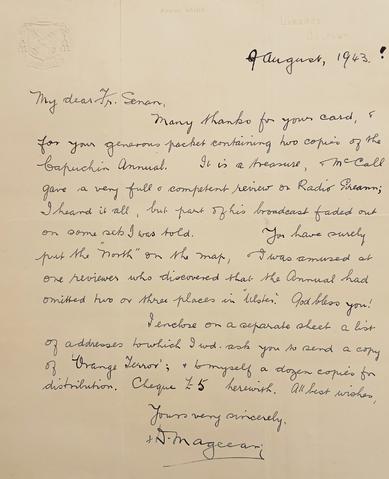 9 August, 1943.
My dear Fr. Senan,
Many thanks for your card, &
for your generous packet containing two copies of the
Capuchin Annual. It is a treasure, & McCall
gave a very full & competent review on Radio Éireann;
I heard it all, but part of his broadcast faded out
on some sets I was told. You have surely
put the "North" on the map, & I was amused at
one reviewer who discovered that the Annual had
omitted two or three places in Ulster. God bless you!
I enclose on a separate sheet a list
of addresses to which I wd. ask you to send a copy
of 'Orange Terror'; & to myself a dozen copies for
distribution. Cheque £5 herewith. All best wishes,
Yours very sincerely.
+ D. Mageean;